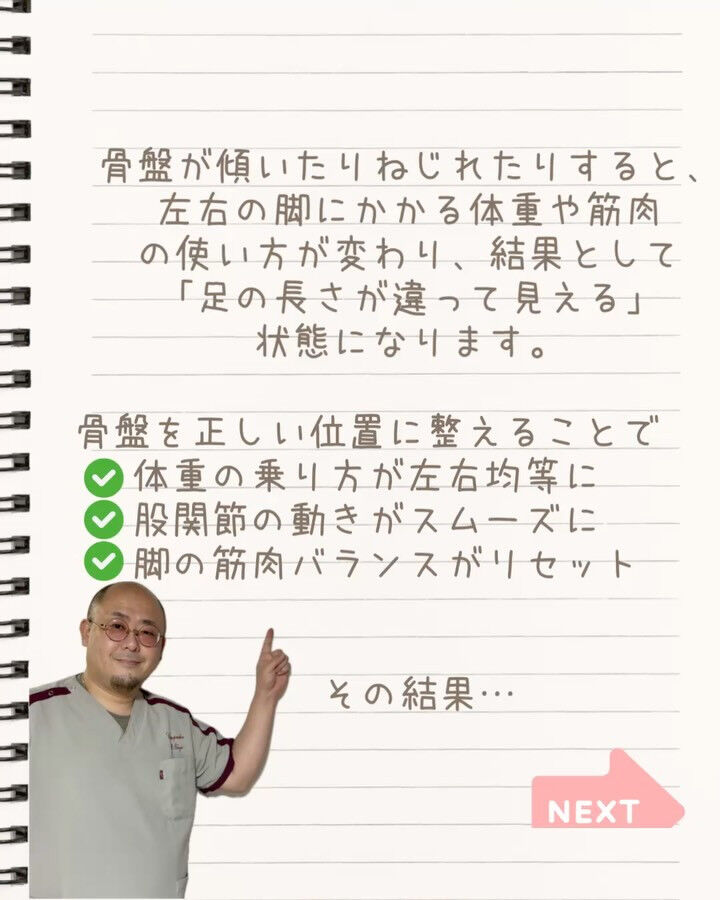 骨盤が傾いたりねじれたりすると、
左右の脚にかかる体重や筋肉
の使い方が変わり、結果として
「足の長さが違って見える」
状態になります。
骨盤を正しい位置に整えることで
体重の乗り方が左右均等に
股関節の動きがスムーズに
脚の筋肉バランスがリセット
その結果…
NEXT